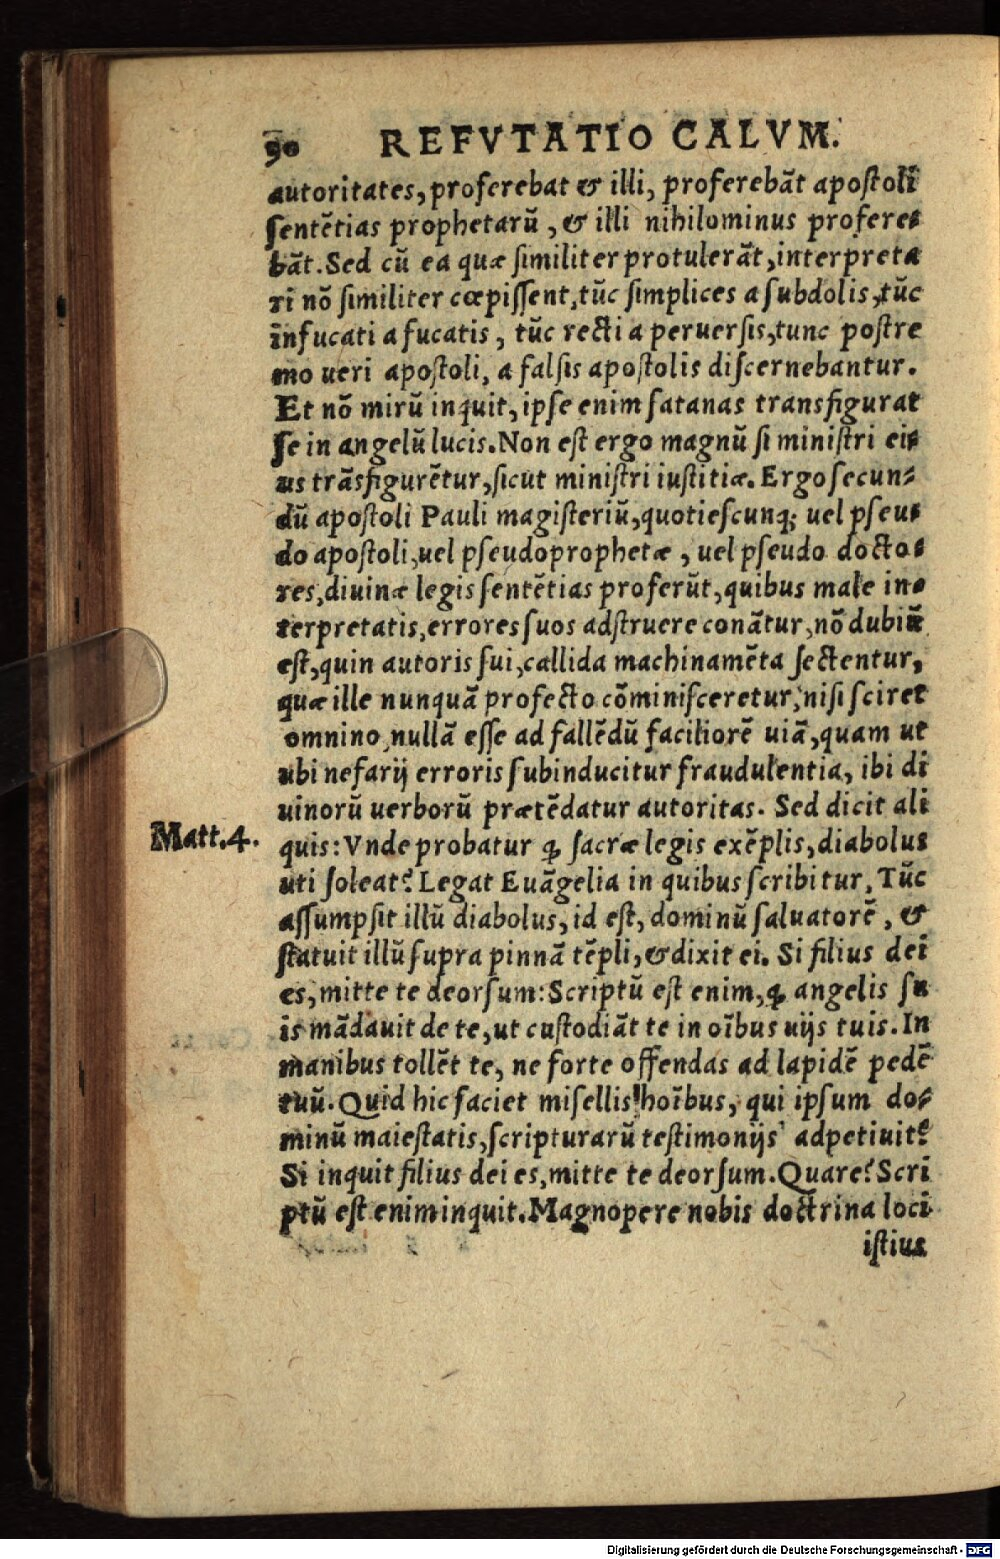 90 REFVTATIO CALVM.
autoritates, proferebat & illi, proferebāt apoſtoli
ſentētias prophetarū, & illi nihilominus profere⸗
bāt. Sed cū ea quæ ſimiliter protulerāt, interpreta
ri nō ſimiliter cœpiſſent, tūc ſimplices a ſubdolis, tūc
infucati a fucatis, tūc recti a peruerſis, tunc poſtre
mo ueri apoſtoli, a falſis apoſtolis diſcernebantur.
Et nō mirū inquit, ipſe enim ſatanas transfigurat
ſe in angelū lucis. Non eſt ergo magnū ſi miniſtri ei⸗
us trāsfigurētur, ſicut miniſtri iuſtitiæ. Ergo ſecun⸗
dū apoſtoli Pauli magiſteriū, quotieſcunq; uel pſeu⸗
do apoſtoli, uel pſeudoprophetæ, uel pſeudo docto⸗
res, diuinæ legis ſentētias proferūt, quibus male in⸗
terpretatis, errores ſuos adſtruere conātur, nō dubiū
eſt, quin autoris ſui, callida machinamēta ſectentur,
quæ ille nunquā profecto cōminiſceretur, niſi ſciret
omnino nullā eſſe ad fallēdū faciliorē uiā, quam ut
ubi nefarij erroris ſubinducitur fraudulentia, ibi di
uinorū uerborū prætēdatur autoritas. Sed dicit ali
Matt. 4.
quis: Vnde probatur ꝙ ſacræ legis exēplis, diabolus
uti ſoleat? Legat Euāgelia in quibus ſcribitur, Tūc
aſſumpſit illū diabolus, id eſt, dominū ſaluatorē, &
ſtatuit illū ſupra pinnā tēpli, & dixit ei. Si filius dei
es, mitte te deorſum: Scriptū eſt enim, ꝙ angelis ſu
is mādauit de te, ut cuſtodiāt te in oībus uijs tuis. In
manibus tollēt te, ne forte offendas ad lapidē pedē
tuū. Quid hic faciet miſellis hoībus, qui ipſum do⸗
minū maieſtatis, ſcripturarū teſtimonijs adpetiuit?
Si inquit filius dei es, mitte te deorſum. Quare? Scri
ptū eſt enim inquit. Magnopere nobis doctrina loci
iſtius
Digitalisierung gefördert durch die Deutsche Forschungsgemeinschaft - DFG